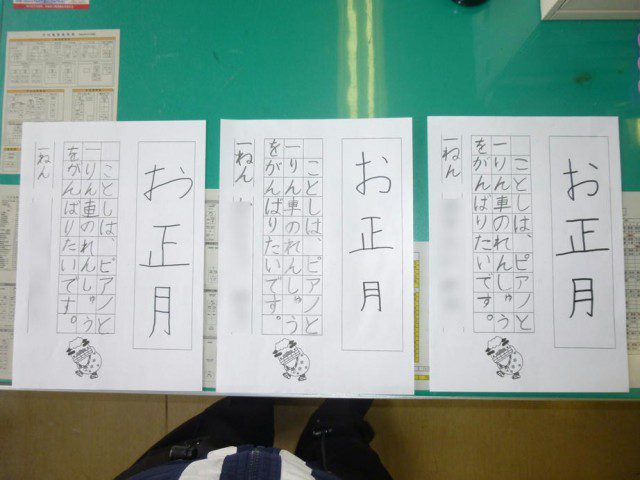 お正月
ことしは、ピアノと
一りん車のれんしゅう
をがんばりたいです。
一ねん
お正月
ことしは、ピアノと
一りん車のれんしゅう
をがんばりたいです。
一ねん
お正月
ことしは、ピアノと
一りん車のれんしゅう
をがんばりたいです。
一ねん